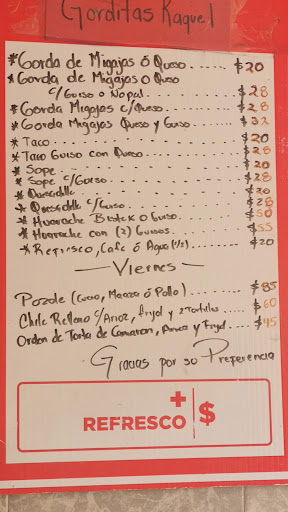 Gorditas Raquel
*Gorda de Migajas ó Queso...... $20
*Gorda de Migajas o Queso
c/Guiso o Nopal......... $28
*Gorda Migajas c/Queso....... $28
*Gorda Migajas Queso y Guiso..... $32
*Taco.................... $20
*Taco Guiso con Queso......... $28
*Sope.................... $20
*Sope c/Guiso............. $28
*Quesadilla............... $20
*Quesadilla c/Guiso......... $28
*Huarache Bistek o Guiso...... $50
*Huarache con (2) Guisos...... $55
*Refresco, Cafe ó Agua (1/2)...... $20
—Viernes—
Pozole (Cuero, Maciza ó Pollo)....... $85
Chile Relleno c/Arroz, frijol y 2 Tortillas.... $60
Orden de Torta de Camaron, Arroz y Frijol.... $45
Gracias por su Preferencia
+
REFRESCO $